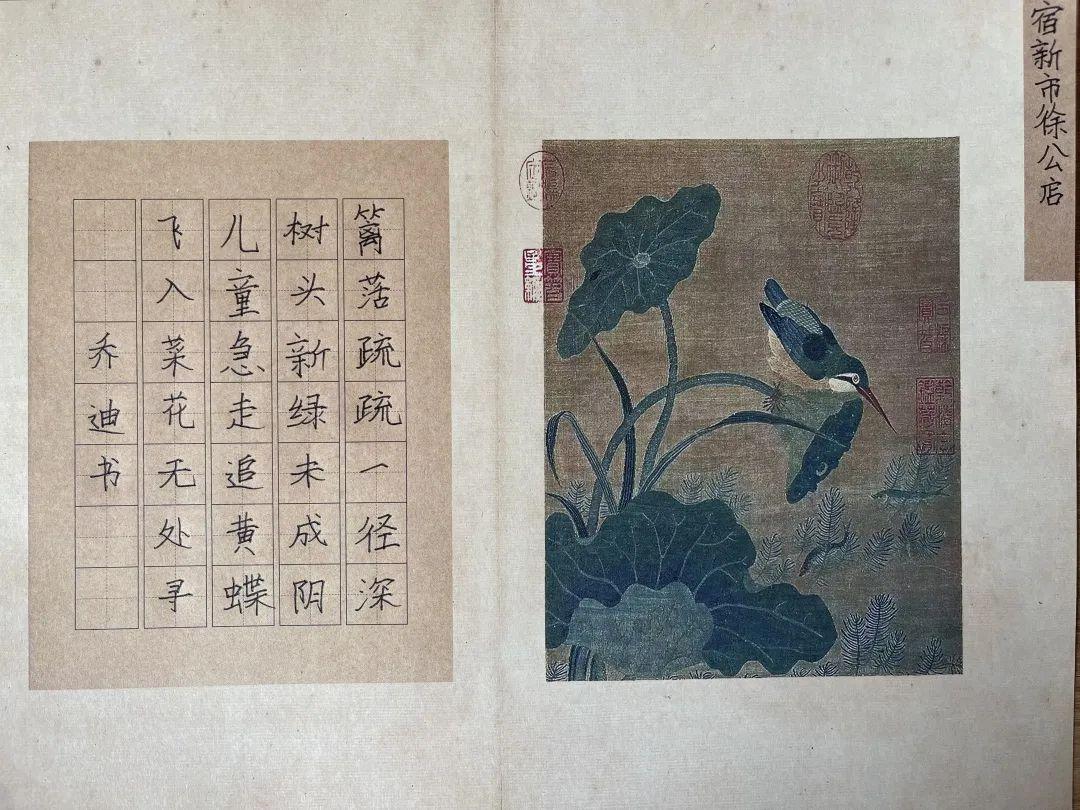 宿新市徐公店
篱落疏疏一径深
树头新绿未成阴
儿童急走追黄蝶
飞入菜花无处寻
乔迪书